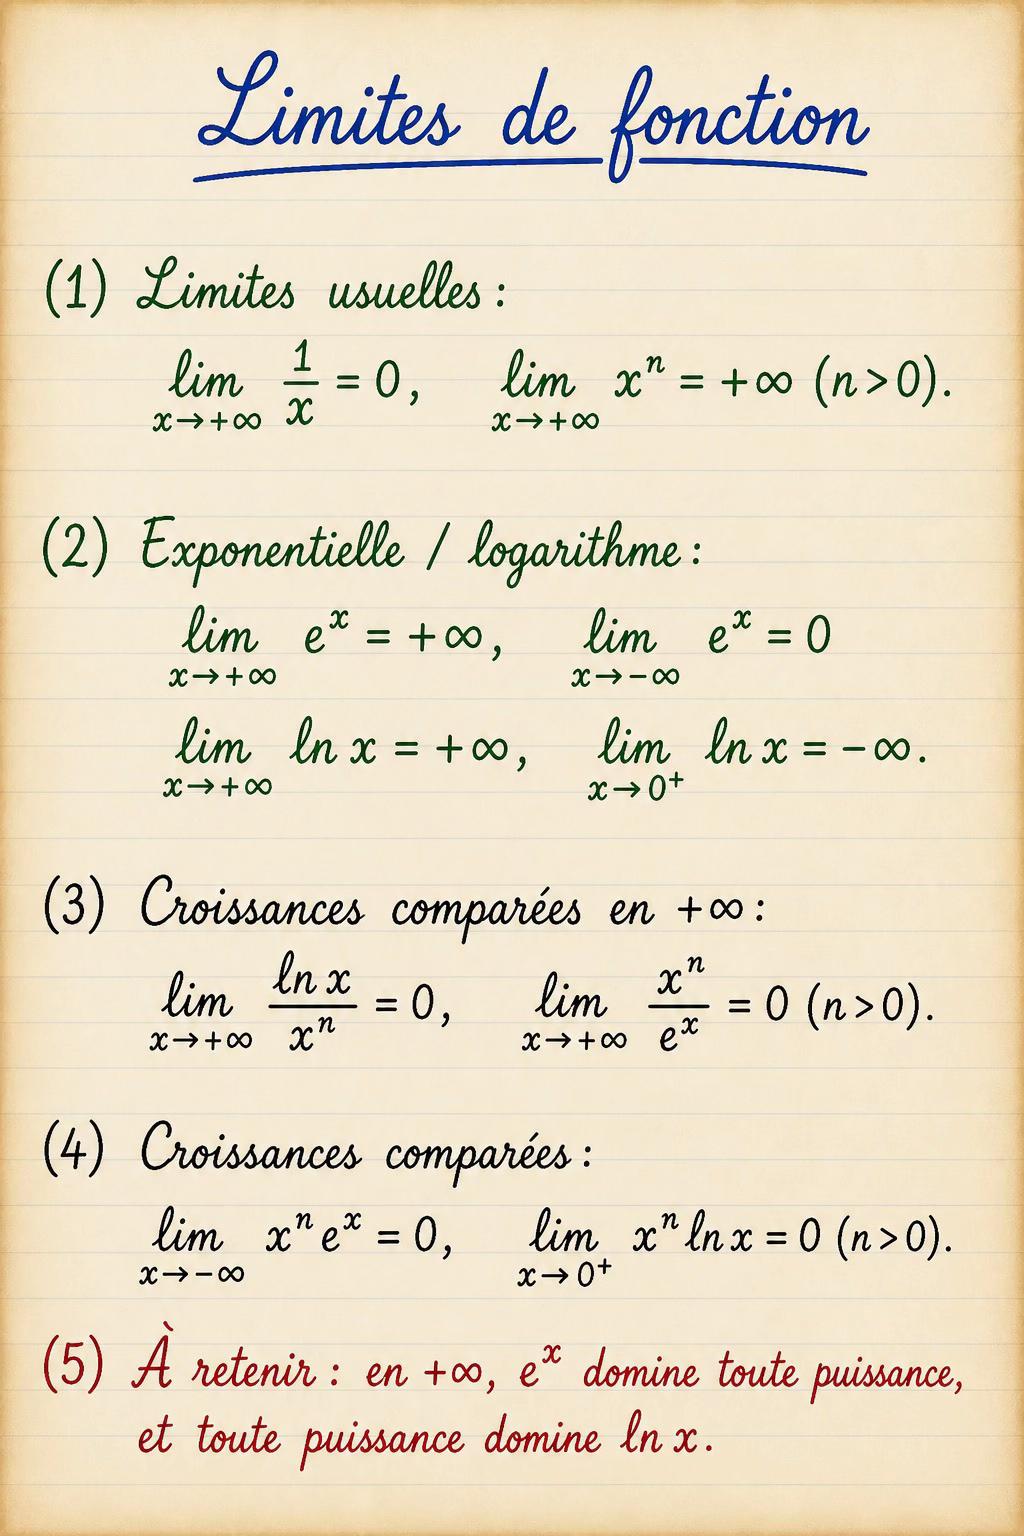 Limites de fonction
(1) Limites usuelles :
lim_{x→+∞} 1/x = 0, lim_{x→+∞} xⁿ = +∞ (n>0).
(2) Exponentielle / logarithme :
lim_{x→+∞} eˣ = +∞, lim_{x→-∞} eˣ = 0
lim_{x→+∞} ln x = +∞, lim_{x→0⁺} ln x = -∞.
(3) Croissances comparées en +∞ :
lim_{x→+∞} ln x / xⁿ = 0, lim_{x→+∞} xⁿ / eˣ = 0 (n>0).
(4) Croissances comparées :
lim_{x→-∞} xⁿ eˣ = 0, lim_{x→0⁺} xⁿ ln x = 0 (n>0).
(5) À retenir : en +∞, eˣ domine toute puissance,
et toute puissance domine ln x.